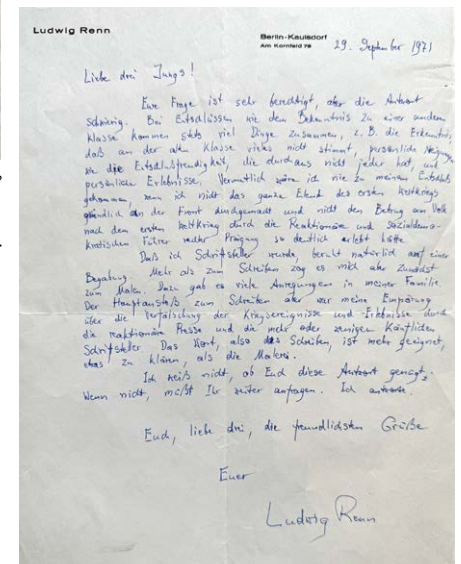 Ludwig Renn
Berlin-Kaulsdorf
Am Kornfeld 78
29. September 1971
Liebe drei Jungs!
Eure Frage ist sehr berechtigt, aber die Antwort
schwierig. Bei Entschlüssen wie dem Bekenntnis zu einer andern
Klasse kommen stets viel Dinge zusammen, z.B. die Erkenntnis,
daß an der alten Klasse vieles nicht stimmt, persönliche Neigungen
wie die Entschlußfreudigkeit, die durchaus nicht jeder hat, und
persönliche Erlebnisse. Vermutlich wäre ich nie zu meinem Entschluß
gekommen, wenn ich nicht das ganze Elend des ersten Weltkriegs
gründlich an der Front durchgemacht und nicht den Betrug am Volk
nach dem ersten Weltkrieg durch die Reaktionäre und sozialdemo-
kratischen Führer rechter Prägung so deutlich erlebt hätte.
Daß ich Schriftsteller wurde, beruht natürlich auf einer
Begabung. Mehr als zum Schreiben zog es mich aber zunächst
zum Malen. Dazu gab es viele Anregungen in meiner Familie.
Der Hauptanstoß zum Schreiben aber war meine Empörung
über die Verfälschung der Kriegsereignisse und -Erlebnisse durch
die reaktionäre Presse und die mehr oder weniger käuflichen
Schriftsteller. Das Wort, also das Schreiben, ist mehr geeignet,
etwas zu klären, als die Malerei.
Ich weiß nicht, ob Euch diese Antwort genügt.
Wenn nicht, müßt Ihr weiter anfragen. Ich antworte.
Euch, liebe drei, die freundlichsten Grüße
Euer
Ludwig Renn